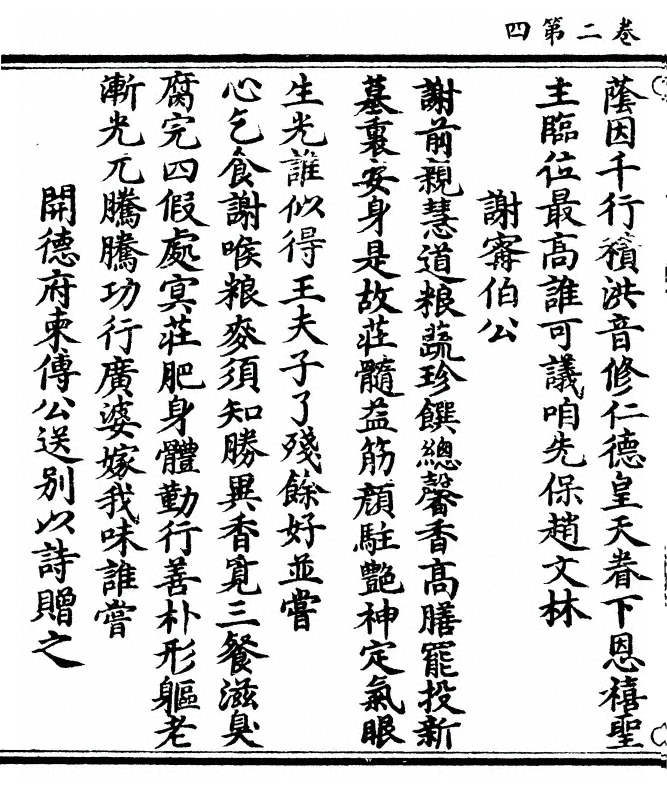 卷二第四
蔭因千行積洪音修仁德皇天眷下恩禧聖
主臨位最高誰可議咱先保趙文林
謝甯伯公
謝前親慧道粮蔬珍饌總馨香高膳罷投新
墓裏安身是故莊髓益筋顏駐艷神定氣眼
生光誰似得王夫子了殘餘好並嘗
心乞食謝喉粮麥須知勝異香寬三餐滋臭
腐完四假處冥莊肥身體勤行善朴形軀老
漸光兀騰騰功行廣婆嫁我味誰嘗
開德府柬傳公送別以詩贈之